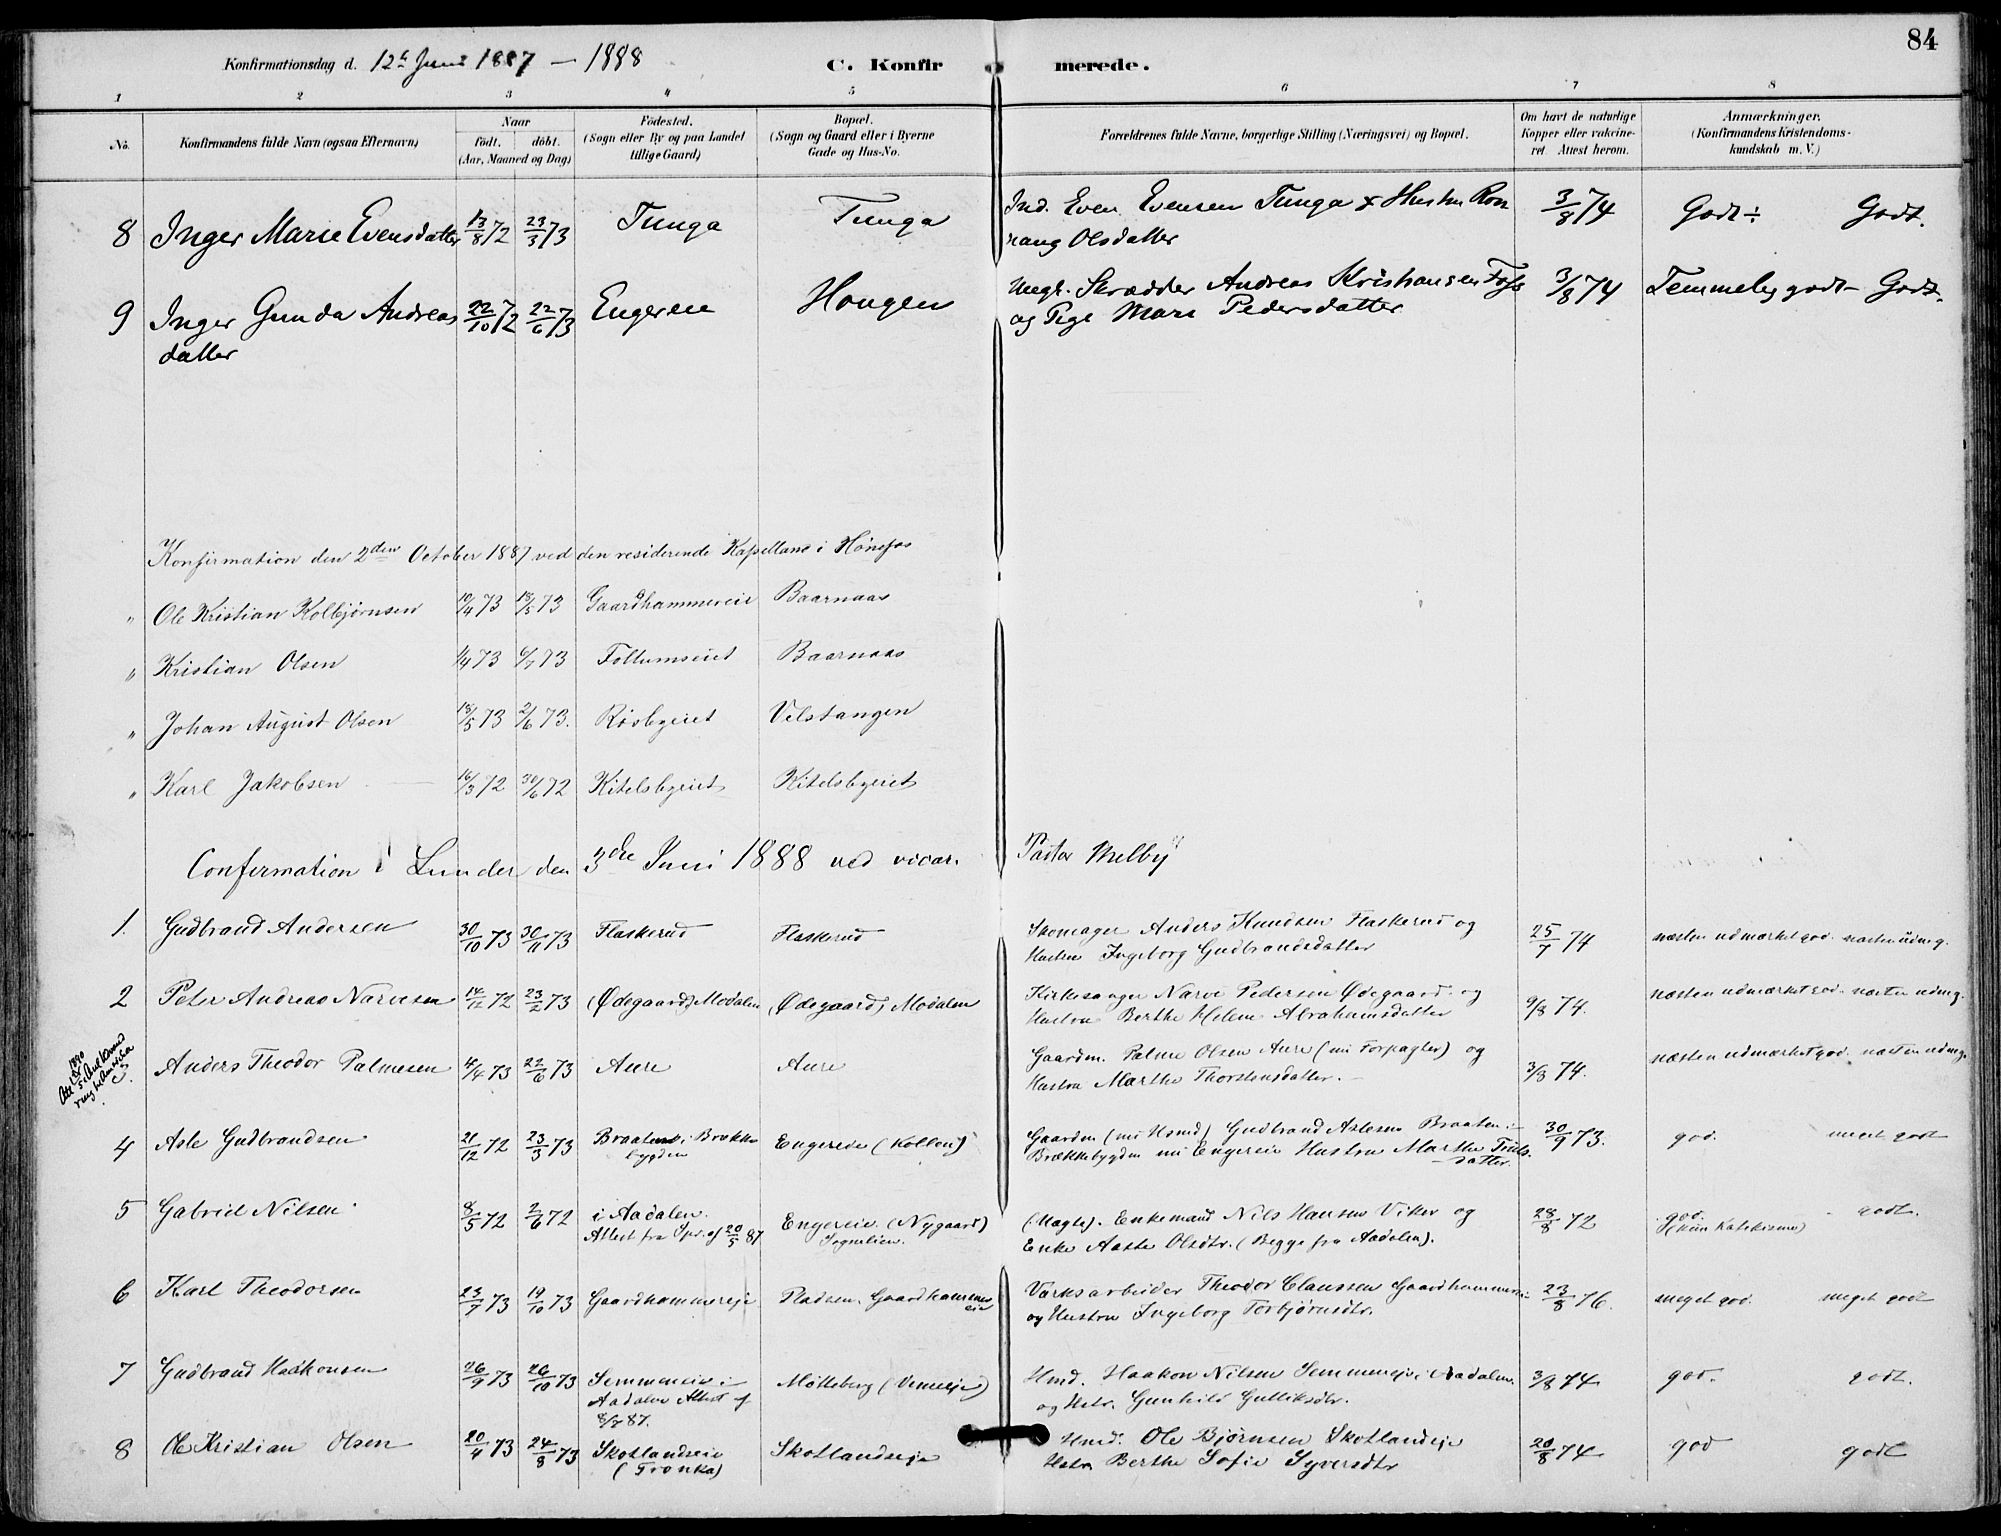 84
Konfirmationsdag d. 12te Juni 1887 – 1888 C. Konfirmerede.
1 2 3 4 5 6 7 8
No. Konfirmandens fulde Navn (ogsaa Efternavn) Naar födt. döbt. (Aar, Maaned og Dag) Födested. (Sogn eller By og paa Landet tillige Gaard) Bopæl. (Sogn og Gaard eller i Byerne Gade og Hus-No. Forældrenes fulde Navne, borgerlige Stilling (Næringsvei) og Bopæl. Om havt de naturlige Kopper eller vakcineret. Attest herom. Anmærkninger. (Konfirmandens Kristendomskundskab m. V.)
8 Inger Marie Evensdatter 13/8 72 23/3 73 Tunga Tunga Ind. Even Evensen Tunga & Hustru Ron
naug Olsdatter 3/8 74 Godt ÷ Godt.
9 Inger Gunda Andreas 22/10 72 22/6 73 Engereie Hougen Ungk. Skrædder Andreas Kristiansen Foss
datter og Pige Mari Pedersdatter 3/8 74 Temmelig godt – Godt.
Konfirmation den 2den October 1887 ved den residerende Kapellane i Hönefos
" Ole Kristian Kolbjørnsen 10/4 73 18/5 73 Gaardhammereie Baarnaas
" Kristian Olsen 1/4 73 6/7 73 Follumseiet Baarnaas
" Johan August Olsen 18/5 73 2/6 73. Risbyeiet Velstangen
" Karl Jakobsen 16/3 72 30/6 72 Kitelsbyeiet Kitelsbyeiet
Confirmation i Lunder den 3die Juni 1888 ved vicar. Pastor Melby
1. Gudbrand Andersen 30/10 73 30/11 73 Flaskerud Flaskerud Skomager Anders Knudsen Flaskerud og
Hustru Ingeborg Gudbrandsdatter 25/7 74 næsten udmærket god. næsten udmg.
2 Peter Andreas Narvesen 14/12 72 23/2 73 (Ødegaard) Modalen (Ødegaard) Modalen Kirkesanger Narve Pedersen Ødegaard og
Hustru Berthe Helene Abrahamsdatter 9/8 74. næsten udmærket god. næsten udmg.
3. Anders Theodor Palmesen 4/4 73 22/6 73 Aure Aure Gaardm. Palme Olsen Aure (nu Forpagter) og
Hustru Marthe Thorstensdatter. – 3/8 74. næsten udmærket god. næsten udmg.
4 Asle Gudbrandsen 21/12 72 23/3 73 Braaten i Brække
bygden Engereie (Kollen) Gaardm (nu Hsmd) Gudbrand Aslesen Braaten i
Brækkebygden nu Engereie Hustru Marthe Truls-
datter. 30/9 73. god. meget godt
5 Gabriel Nilsen 8/5 72 2/6 72 i Aadalen.
Attest fra Spr. af 20/5 87 Engereie (Nygaard)
Sognelien. (Uægte). Enkemand Nils Hansen Viker og
Enke Aaste Olsdtr. (Begge fra Aadalen). 28/8 72 god.
(kun Katekismus) godt.
6 Karl Theodorsen 23/7 73 19/10 73 Gaardhammereje Pladsen, Gaardhammer
eie Værksarbeider Theodor Claussen Gaardhammerei
og Hustru Ingeborg Torbjørnsdtr. 23/8 76. meget god. meget godt
7 Gudbrand Haakonsen 26/9 73 26/10 73 Semmeneie i
Aadalen Attest af
8/7 87. Møtteberg (Vemeeje) Hmd. Haakon Nilsen Semmeneje i Aadalen
og Hstr. Gunhild Gulliksdtr. 3/8 74 god. godt.
8 Ole Kristian Olsen 20/4 73 24/8 73 Skotlandseie
(Fronka) Skotlandseje Hmd. Ole Bjørnsen Skotlandeje
Hstr Berthe Sofie Syversdtr 20/8 74 god godt